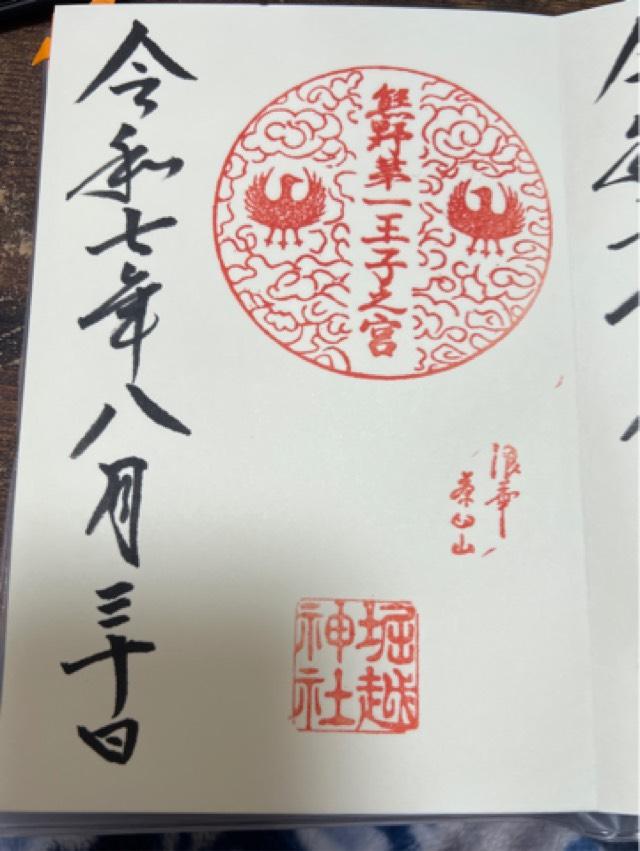 熊野第一王子之宮
浪華
茶臼山
堀越
神社
令和七年八月三十日